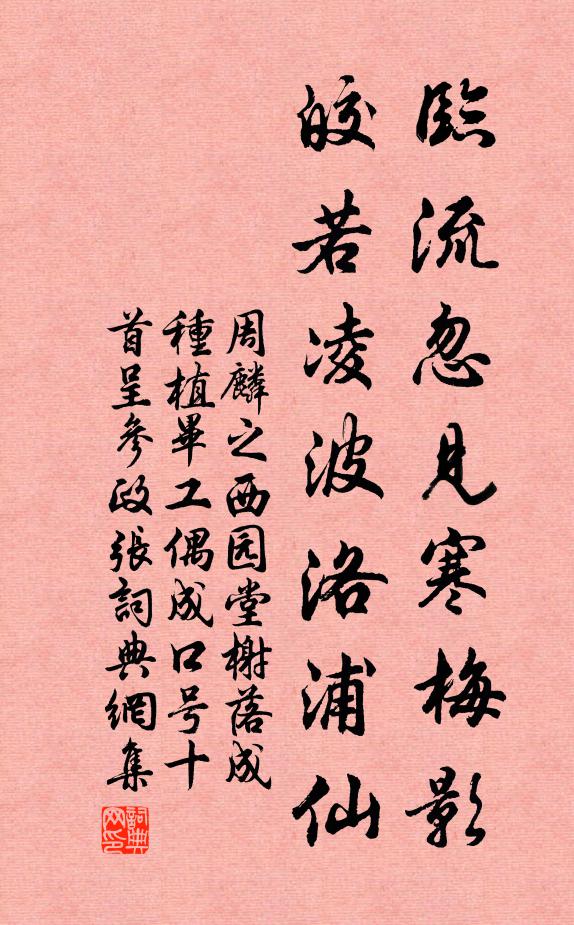 臨流忽見寒梅影
皎若凌波洛浦仙
周麟之西园堂榭落成
種植畢工偶成口号十
首呈參政張詞典網集
詞典
网印